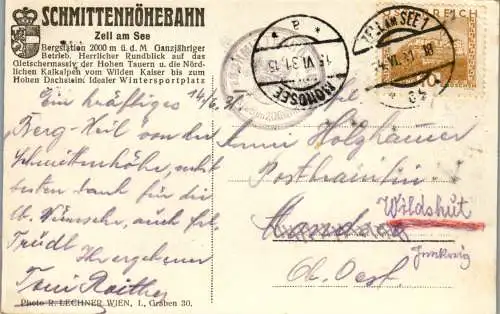 SCHMITTENHÖHEBAHN
Zell am See
Bergstation 2000 m ü. d. M Ganzjähriger
Betrieb. Herrlicher Rundblick auf das
Gletschermassiv der Hohen Tauern u. die Nörd-
lichen Kalkalpen vom Wilden Kaiser bis zum
Hohen Dachstein. Idealer Wintersportplatz
P
15.VI.31
MONDSEE
ZELL AM SEE 1
REICH
GROSCHEN
Ein kräftiges 14/6. 31
Berg-Heil von der
Schmittenhöhe, nebst
besten Dank für die
lb. Wünsche, auch frl.
Trudl Ihr ergebener
Toni Raither
Anna Holzhauer
Postbeamtin
Mondsee
Wildshut
Innkreis
Ob. Oest.
Photo R. LECHNER WIEN, I., Graben 30.